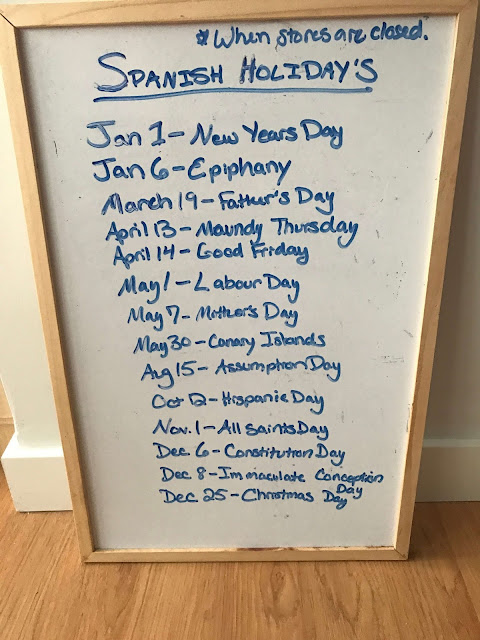 * When stores are closed.
SPANISH HOLIDAY'S
Jan 1 - New Years Day
Jan 6 - Epiphany
March 19 - Father's Day
April 13 - Maundy Thursday
April 14 - Good Friday
May 1 - Labour Day
May 7 - Mother's Day
May 30 - Canary Islands
Aug 15 - Assumption Day
Oct 12 - Hispanic Day
Nov. 1 - All Saints Day
Dec 6 - Constitution Day
Dec 8 - Immaculate Conception Day
Dec 25 - Christmas Day